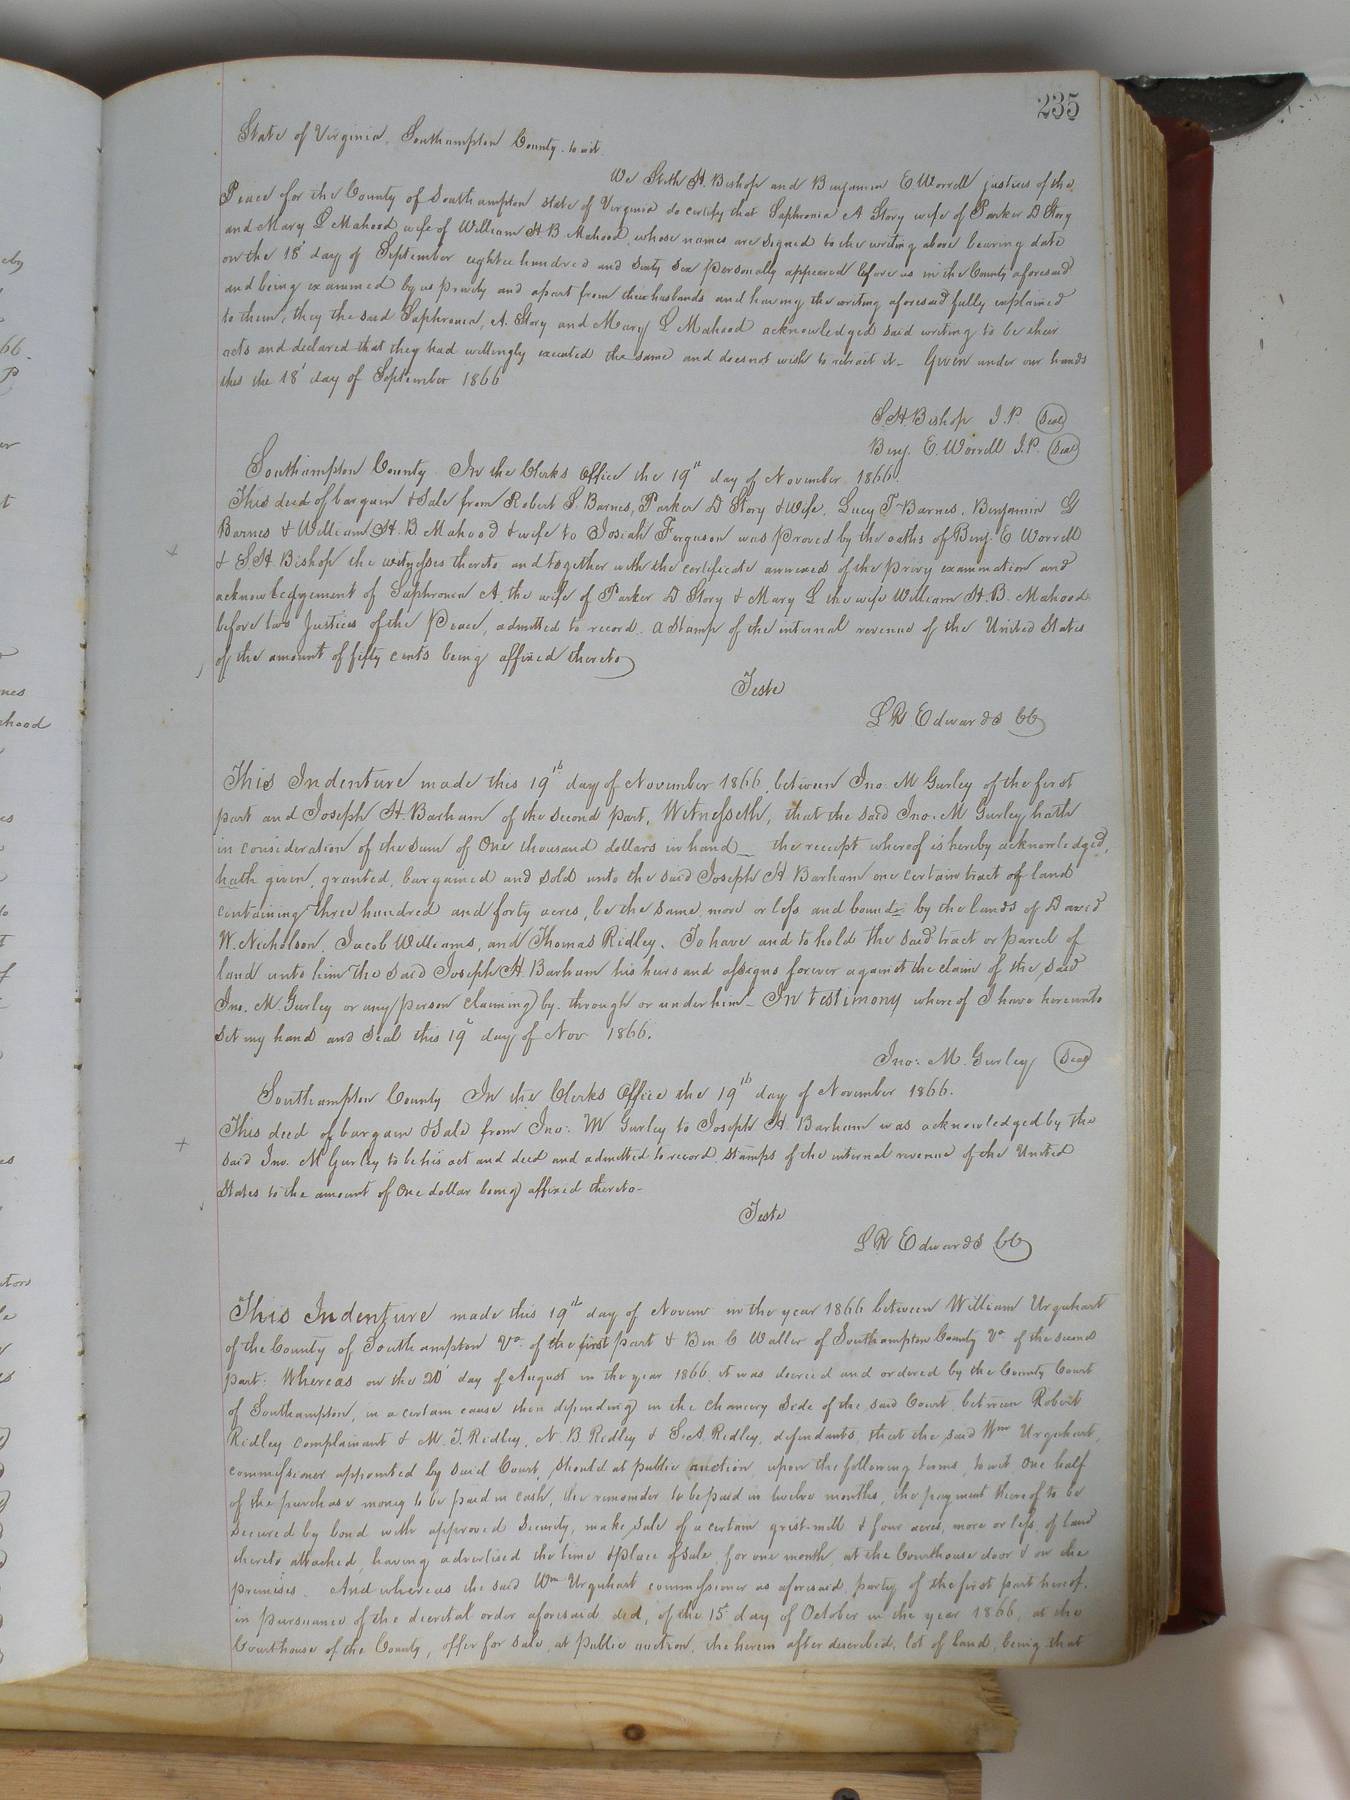 235
State of Virginia, Southampton County. to wit.
We Sith H. Bishop and Benjamin E Worrell justices of the
Peace for the County of Southampton state of Virginia do certify that Saphronia A Story wife of Parker D Story
and Mary L Mahood wife of William H B Mahood whose names are signed to the writing above bearing date
on the 18th day of September eighteen hundred and sixty six personally appeared before us in the County aforesaid
and being examined by us privily and apart from their husbands and having the writing aforesaid fully explained
to them, they the said Saphronia, A. Story and Mary L Mahood acknowledged said writing to be their
acts and declared that they had willingly executed the same and does not wish to retract it - Given under our hands
this the 18' day of September 1866
S. H. Bishop J. P. (Seal)
Benj. E. Worrell J. P. (Seal)
Southampton County. In the Clerks Office the 19th day of November 1866.
This deed of bargain & Sale from Robert S. Barnes, Parker D Story & Wife, Lucy T Barnes, Benjamin G
Barnes & William H. B. Mahood & wife to Josiah Ferguson was proved by the oaths of Benj. E Worrell
& S H Bishop the witnesses thereto and together with the certificate annexed of the privy examination and
acknowledgement of Saphronia A. the wife of Parker D Story & Mary L the wife William H. B. Mahood
before two Justices of the Peace, admitted to record. a Stamp of the internal revenue of the United States
of the amount of fifty cents being affixed thereto
Teste
L R Edwards CC
This Indenture made this 19th day of November 1866, between Jno. M Gurley of the first
part and Joseph H. Barham of the second part, Witnesseth, that the said Jno. M Gurley hath
in consideration of the sum of One thousand dollars in hand — the receipt whereof is hereby acknowledged,
hath given, granted, bargained and sold unto the said Joseph H Barham one certain tract of land
containing three hundred and forty acres, be the same, more or less and bound by the lands of David
W. Nicholson, Jacob Williams, and Thomas Ridley. To have and to hold the said tract or parcel of
land unto him the said Joseph H. Barham his heirs and assigns forever against the claim of the said
Jno. M. Gurley or any person claiming by. through or under him - In testimony whereof I have hereunto
set my hand and Seal this 19' day of Nov 1866.
Jno: M. Gurley (Seal)
Southampton County In the Clerks Office the 19th day of November 1866.
This deed of bargain & Sale from Jno: M Gurley to Joseph H. Barham was acknowledged by the
said Jno. M Gurley to be his act and deed and admitted to record, Stamps of the internal revenue of the United
States to the amount of One dollar being affixed thereto -
Teste
L R Edwards CC
This Indenture made this 19th day of Novem in the year 1866 between William Urquhart
of the County of Southampton Va. of the first part & Ben C Waller of Southampton County Va. of the second
part: Whereas on the 20' day of August in the year 1866, it was decreed and ordered by the County Court
of Southampton, in a certain cause then depending in the chancery side of the said Court, between Robert
Ridley complainant & M. T. Ridley, N. B. Ridley & S. A. Ridley, defendants, that the said Wm Urquhart,
commissioner appointed by said Court, should at public auction, upon the following terms, to wit. One half
of the purchase money to be paid in cash, the remainder to be paid in twelve months, the payment thereof to be
secured by bond with approved Security, make sale of a certain grist-mill & four acres, more or less, of land
thereto attached, having advertised the time & place of sale, for one month, at the Courthouse door & on the
premises. And whereas the said Wm Urquhart commissioner as aforesaid, party of the first part hereof,
in pursuance of the decretal order aforesaid did, of the 15' day of October in the year 1866, at the
Courthouse of the County, offer for sale, at public auction, the herein after described lot of land, being that